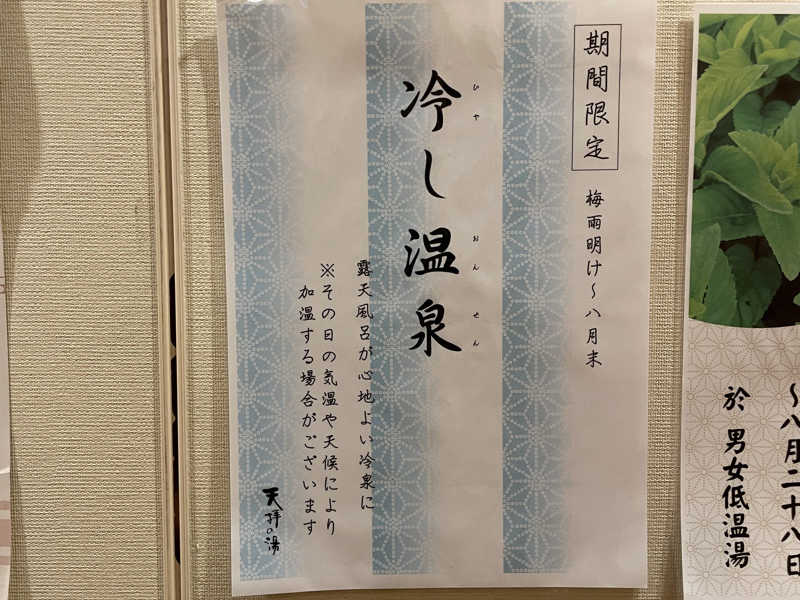 ～八月二十八日
於 男女低温湯
期間限定
梅雨明け～八月末
冷し温泉
ひや
おんせん
露天風呂が心地よい冷泉に
※その日の気温や天候により
加温する場合がございます
天拝の湯